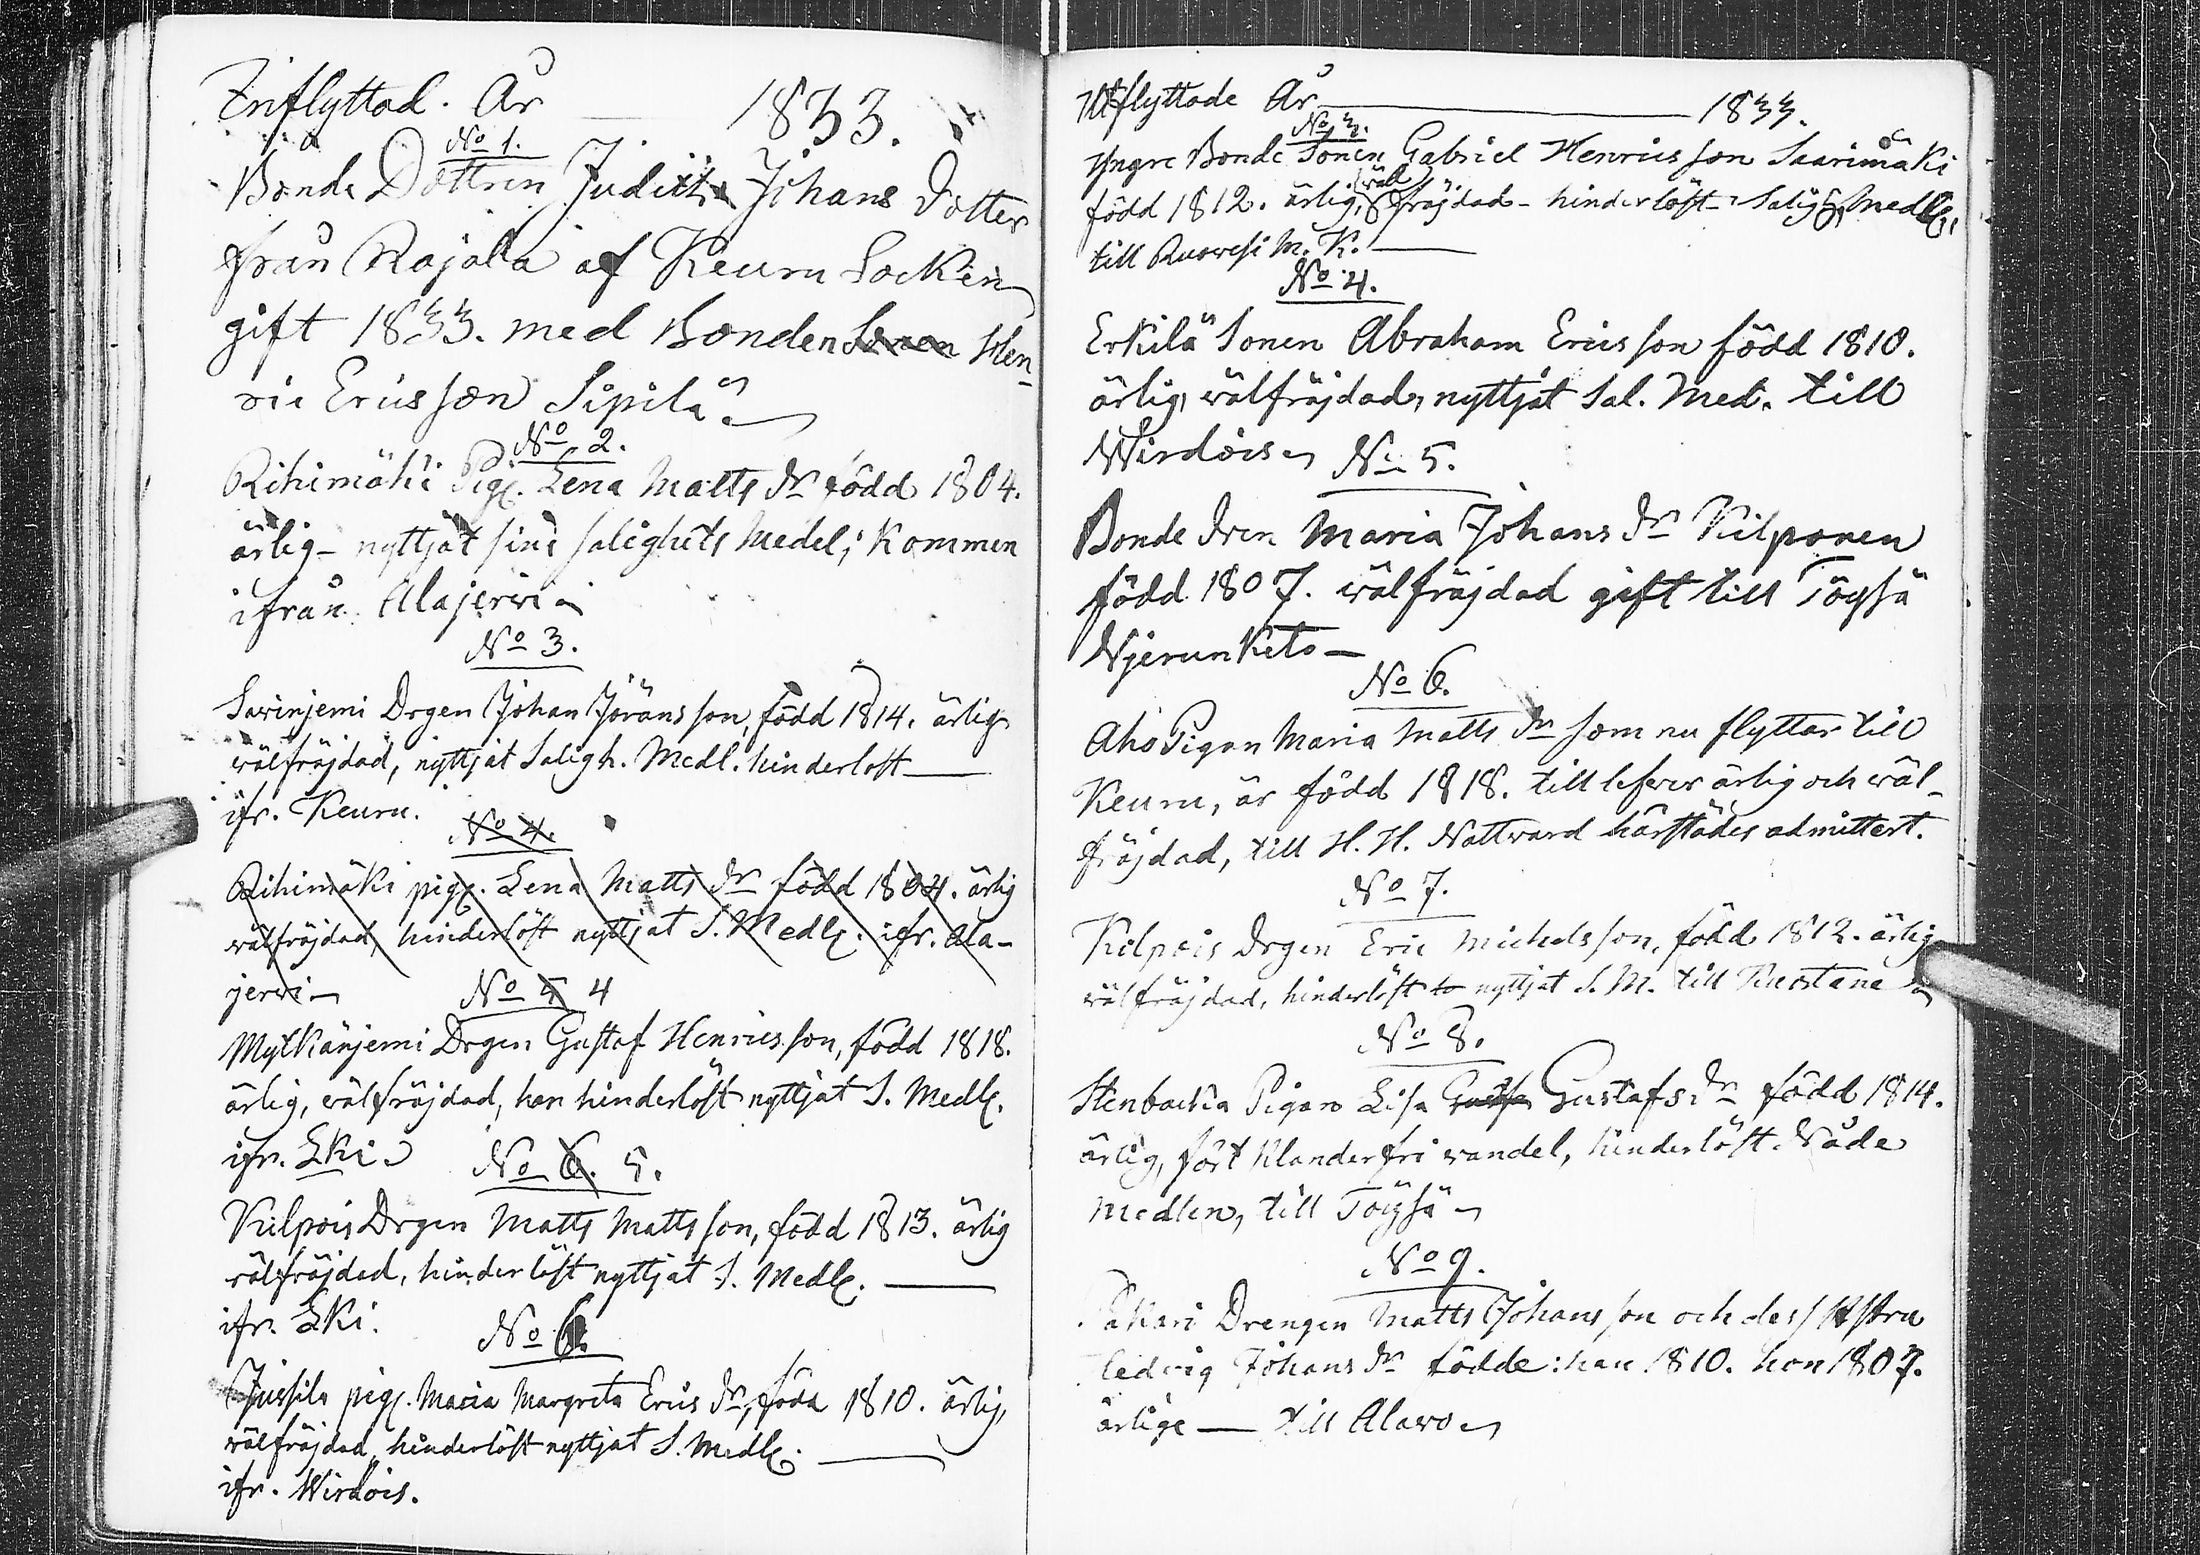 Inflyttad. År 1833.
No 1.
Bonde Dottren Judith Johans Dotter
från Rajala af Keuru Socken
gift 1833. med Bonden Sonen Hen-
ric Ericsson Sipilä
No 2.
Rihimäki Pig. Lena Matts dr född 1804.
ärlig - nyttjat sine salighets Medel; kommen
ifrån Alajerwi
No 3.
Sarinjemi Drgen Johan Jöransson, född 1814. ärlig
wälfräjdad, nyttjat Saligh. Medl. hinderlöst
ifr. Keuru.
No 4.
Rihimäki pig. Lena Matts dr född 1804. ärlig
wälfräjdad, hinderlöst nyttjat S. Medl. ifr. Ala-
jerwi
No 5 4
Mylkänjemi Drgen Gustaf Henricsson, född 1818.
ärlig, wälfräjdad, han hinderlöst nyttjat S. Medl.
ifr. Lki
No 6. 5.
Kilpois Drgen Matts Mattsson, född 1813. ärlig
wälfräjdad, hinderlöst nyttjat S. Medl.
ifr. Lki.
No 6.
Jussila pig. Maria Margreta Erics dr, föda 1810. ärlig,
wälfräjdad, hinderlöst nyttjat S. Medl.
ifr. Wirdois.
Utflyttade År 1833.
No 3.
Yngre Bonde Sonen Gabriel Henricsson Saarimäki
född 1812. ärlig, wäl fräjdad - hinderlöst - Salig. Medl.
till Ruowesi M. K.
No 4.
Erkilä Sonen Abraham Ericsson född 1810.
ärlig, wälfräjdad, nyttjat Sal. Med. till
Wirdois
No 5.
Bonde dren Maria Johans dr Kilponen
född 1807. wälfräjdad gift till Töysä
Njerunketo
No 6.
Aho Pigan Maria Matts dr som nu flyttar till
Keuru, är född 1818. till lefver ärlig och wäl-
fräjdad, till H. H. Nattward härstädes admittert.
No 7.
Kilpois Drgen Eric Michelsson, född 1812. ärlig
wälfräjdad, hinderlöst to nyttjat S. M. till Kuortane
No 8.
Stenbacka Pigan Lisa Gustafs dr född 1814.
ärlig, fört klanderfri wandel, hinderlöst. Nåde
medlen, till Töysä
No 9.
Pakari Drengen Matts Johansson och dess Hstru
Hedvig Johans dr födde: han 1810. hon 1807.
ärlige - till Alawo